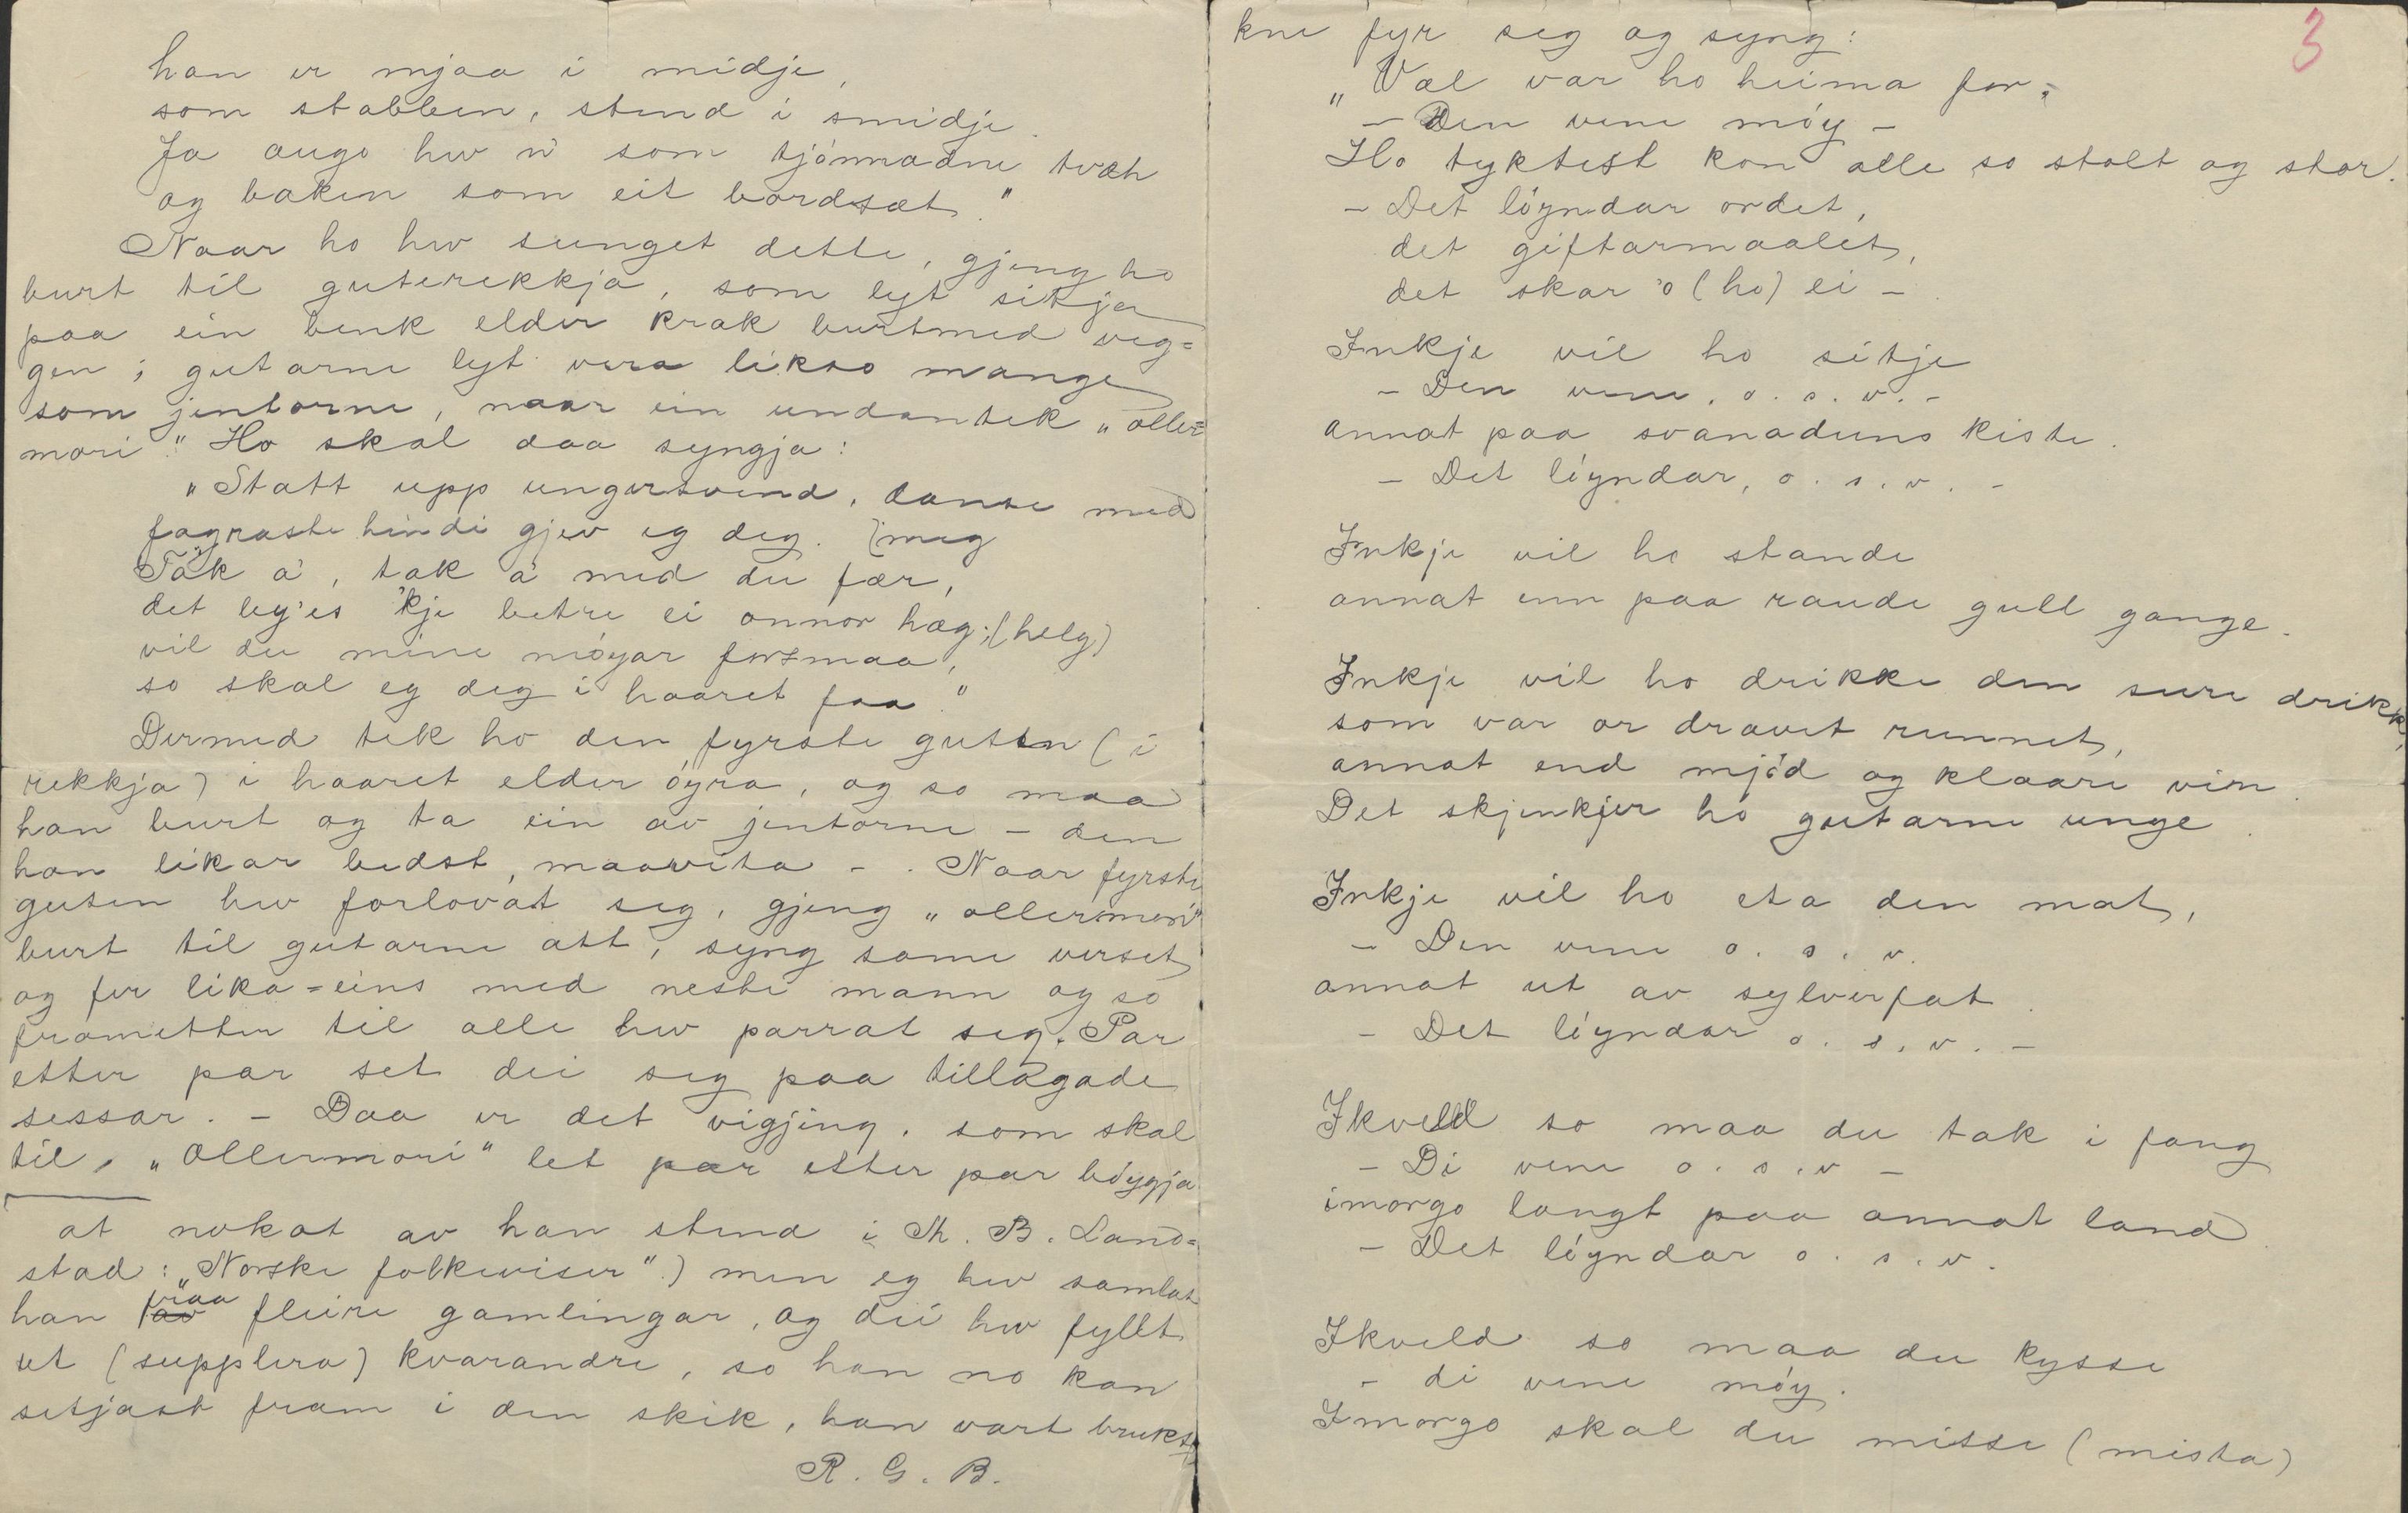 han er mjaa i midje,
som stabben, stend i smidje.
Ja augo hev 'n som tjónnadne tvæh
og baken som eit bordsæt."
Naar ho hev sunget dette, gjeng ho
burt til guterekkja, som lyt sitja
paa ein benk elder krak burtmed veg=
gen; gutarne lyt vera likso mange
som jentorne, naar ein undantek „aller=
mori". Ho skal daa syngja:
„Statt upp ungersvend, danse med
fagraste hindi gjev eg deg. (meg
Tak a', tak a' med du fær,
det leg'es 'kje betre ei annor hæg; (helg)
vil du mine móyar forsmaa,
so skal eg deg i haaret faa."
Dermed tek ho den fyrste guten (i
rekkja) i haaret elder óyra, og so maa
han burt og ta ein av jentorne – den
han likar bedst, maavita – . Naar fyrste
guten hev forlovat seg, gjeng „allermori"
burt til gutarne att, syng same verset
og fer lika=eins med neste mann og so
frametter til alle hev parrat seg. Par
etter par set dei seg paa tillagade
sessar. – Daa er det vigjing, som skal
til, „Allermori" let par etter par bóygja
at nokot av han stend i M. B. Land=
stad: „Norske folkeviser".) men eg hev samlat
han av fraa fleire gamlingar, og dei hev fyllt
ut (supplera) kvarandre, so han no kan
setjast fram i den skik, han vart brukt.
R. G. B.
3
kne fyr seg og syng:
„Væl var ho heima for,
– Den vene móy –
Ho tyktest kon alle so stolt og stor.
– Det lóyndar ordet,
det giftarmaalet,
det skar 'o (ho) ei –
Inkje vil ho sitje
– Den vene, o. s. v. –
annat paa svanaduns kiste.
– Det lóyndar, o. s. v. –
Inkje vil ho stande
annat enn paa raude gull gange.
Inkje vil ho drikke den sure drikk,
som var or dravet runnet,
annat end mjód og klaare vin.
Det skjenkjer ho gutarne unge.
Inkje vil ho eta den mat,
– Den vene o. s. v.
annat ut av sylverfat.
– Det lóyndar o. s. v. –
Ikveld so maa du tak i fang
– Di vene o. s. v –
imorgo langt paa annat land
– Det lóyndar o. s. v.
Ikveld so maa du kysse
– di vene móy.
Imorgo skal du misse (mista)